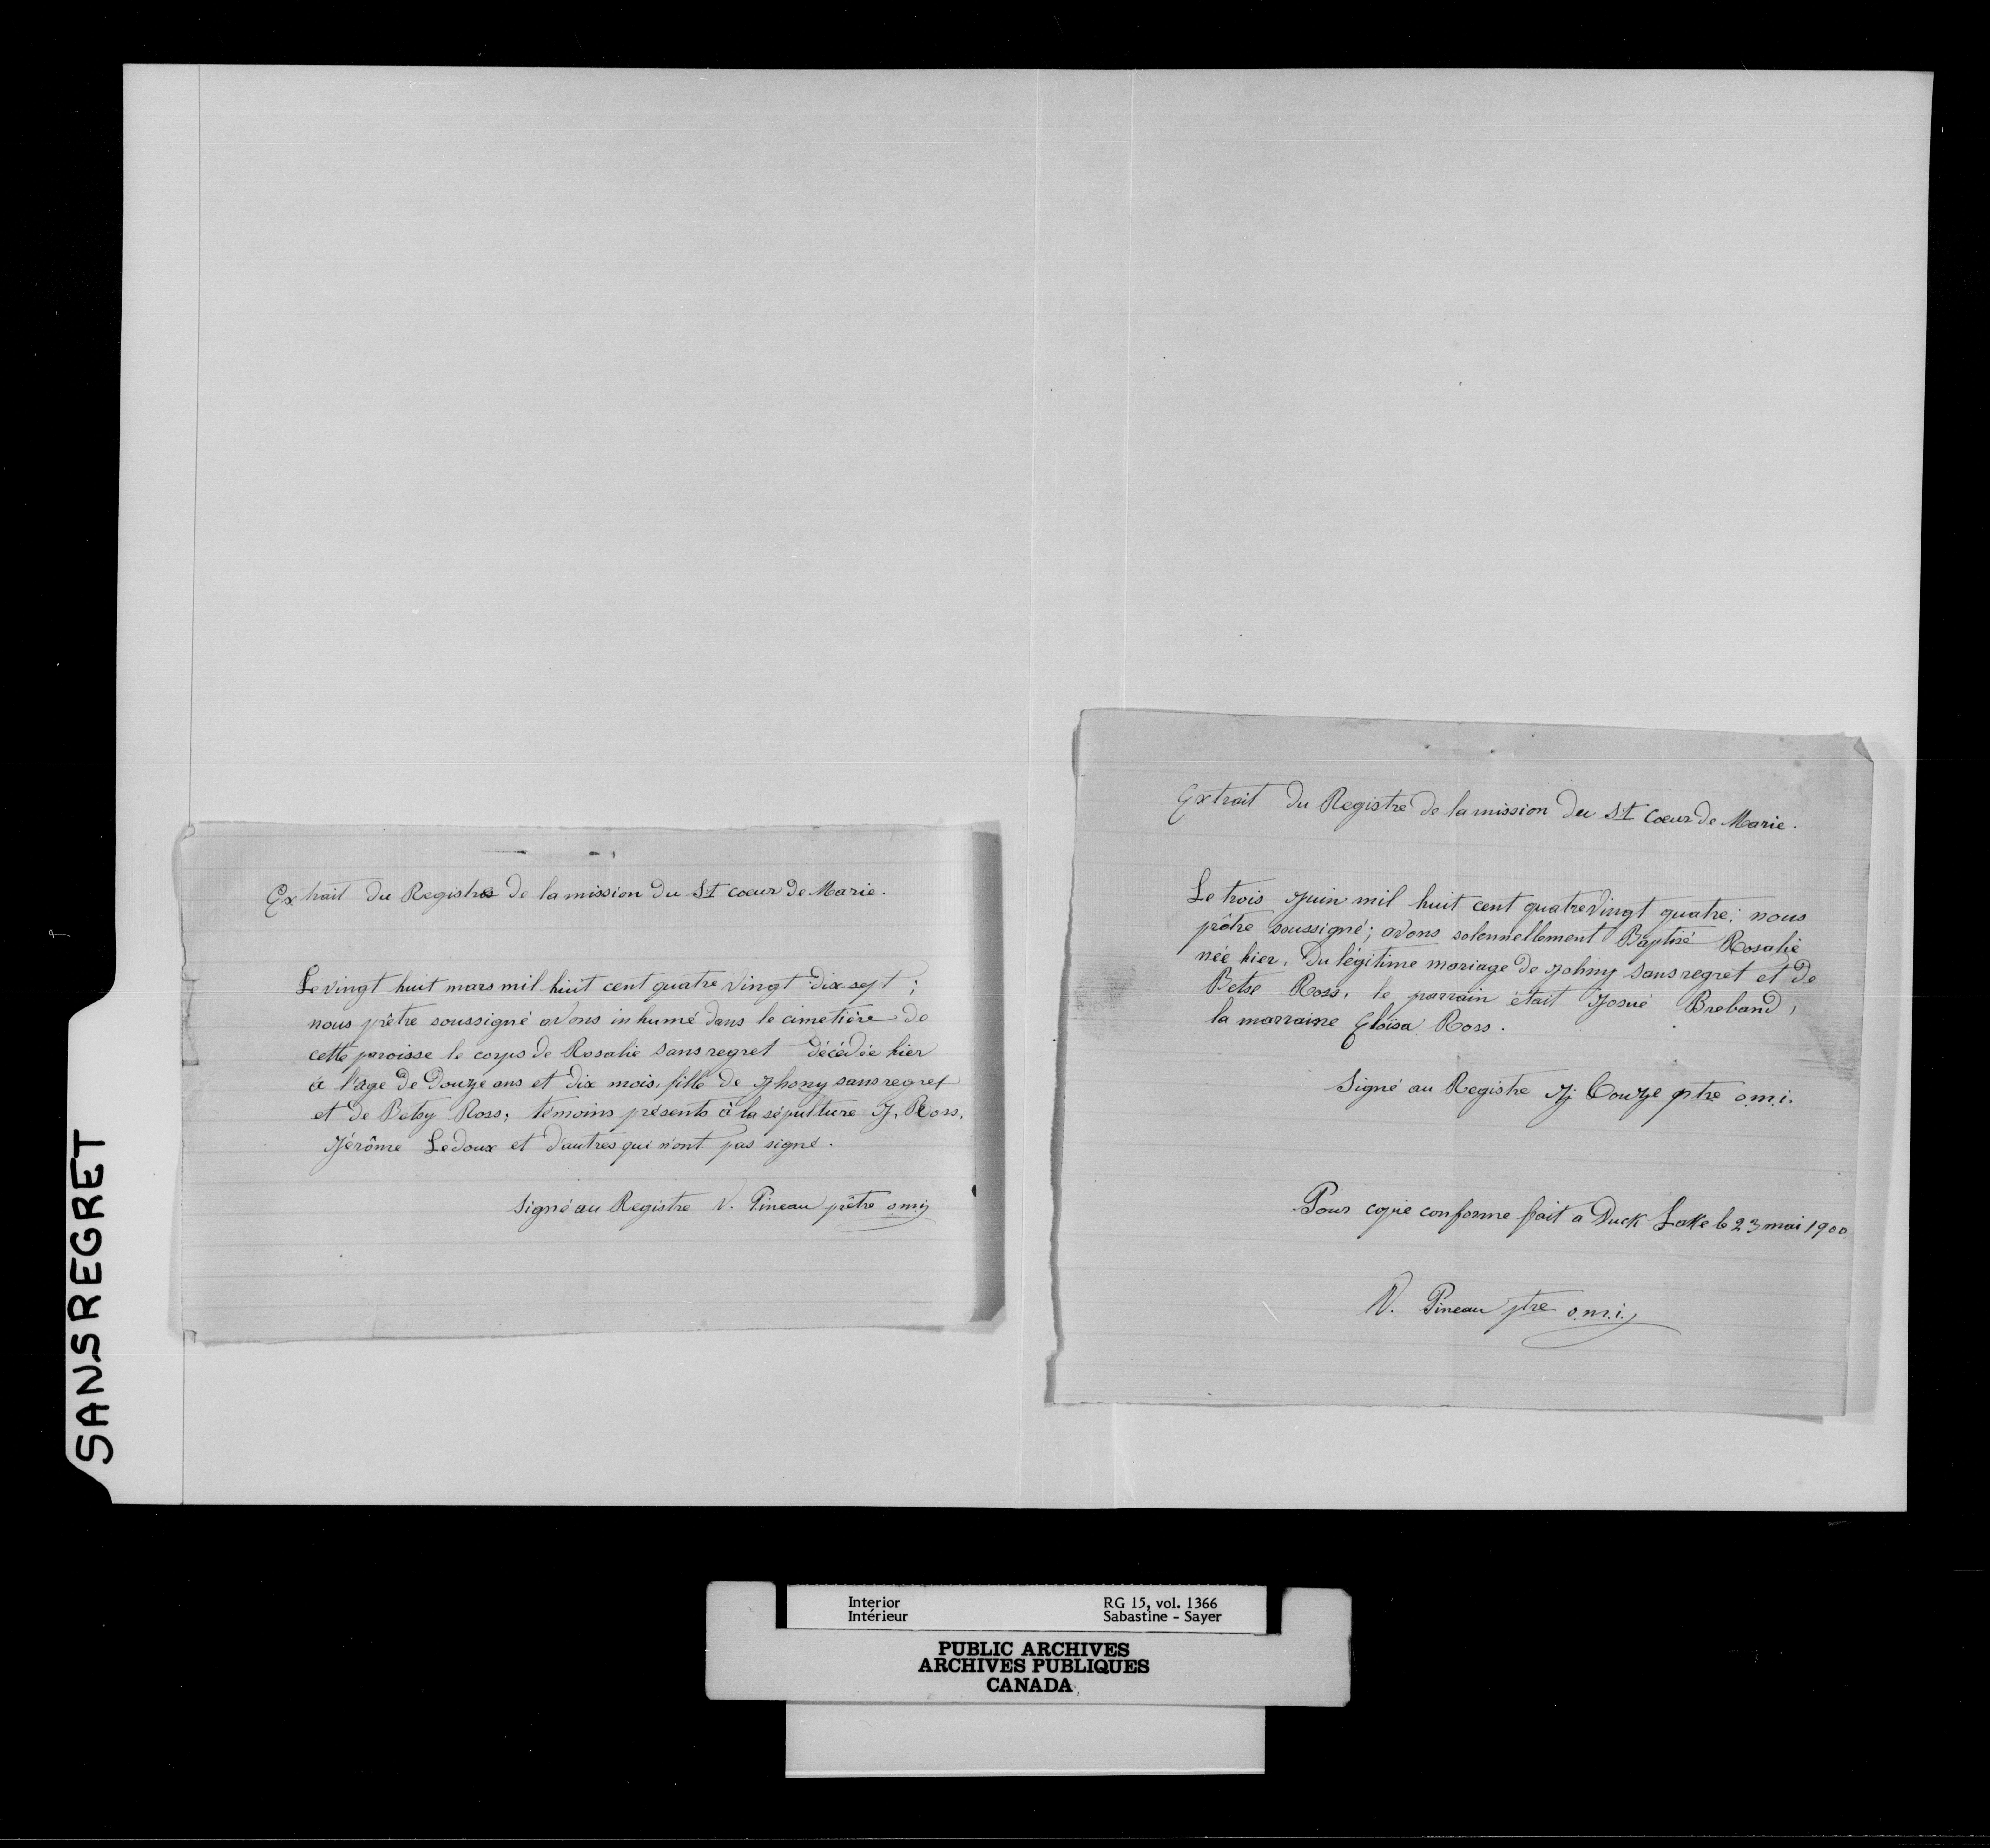 SANSREGRET
Extrait du Registre de la mission du St coeur de Marie.
Le vingt huit mars mil huit cent quatre vingt dix-sept ;
nous prêtre soussigné avons inhumé dans le cimetière de
cette paroisse le corps de Rosalie Sansregret décédée hier
à l'age de Douze ans et dix mois, fille de Jhony sansregret
et de Betsy Ross; témoins présents à la sépulture J. Ross,
Jérôme Ledoux et d'autres qui n'ont pas signé.
Signé au Registre V. Pineau prêtre o.m.i
Extrait du Registre de la mission du St Coeur de Marie.
Le trois Juin mil huit cent quatre vingt quatre; nous
prêtre soussigné; avons solennellement Baptisé Rosalie
née hier, du légitime mariage de Johny Sansregret et de
Betse Ross. le parrain était Josué Breband,
la marraine Eloïsa Ross.
Signé au Registre J. Couze ptre o.m.i.
Pour copie conforme fait a Duck Lake le 23 mai 1900.
V. Pineau ptre o.m.i.
Interior RG 15, vol. 1366
Intérieur Sabastine - Sayer
PUBLIC ARCHIVES
ARCHIVES PUBLIQUES
CANADA